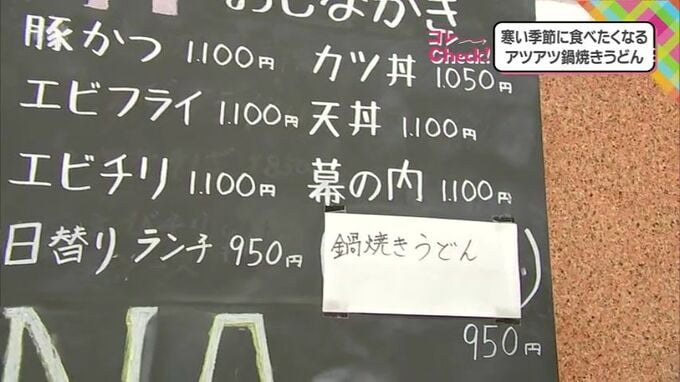 おしながき
コレ〜
Check!
寒い季節に食べたくなる
アツアツ鍋焼きうどん
豚かつ 1.100円 カツ丼 1.050円
エビフライ 1.100円 天丼 1.100円
エビチリ 1.100円 幕の内 1.100円
日替りランチ 950円 (鍋焼きうどん)
950円